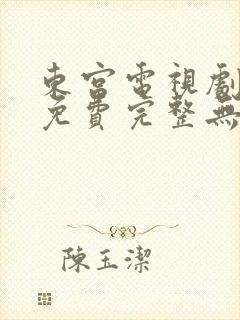 東宮電視劇
免費完整無
陳玉潔